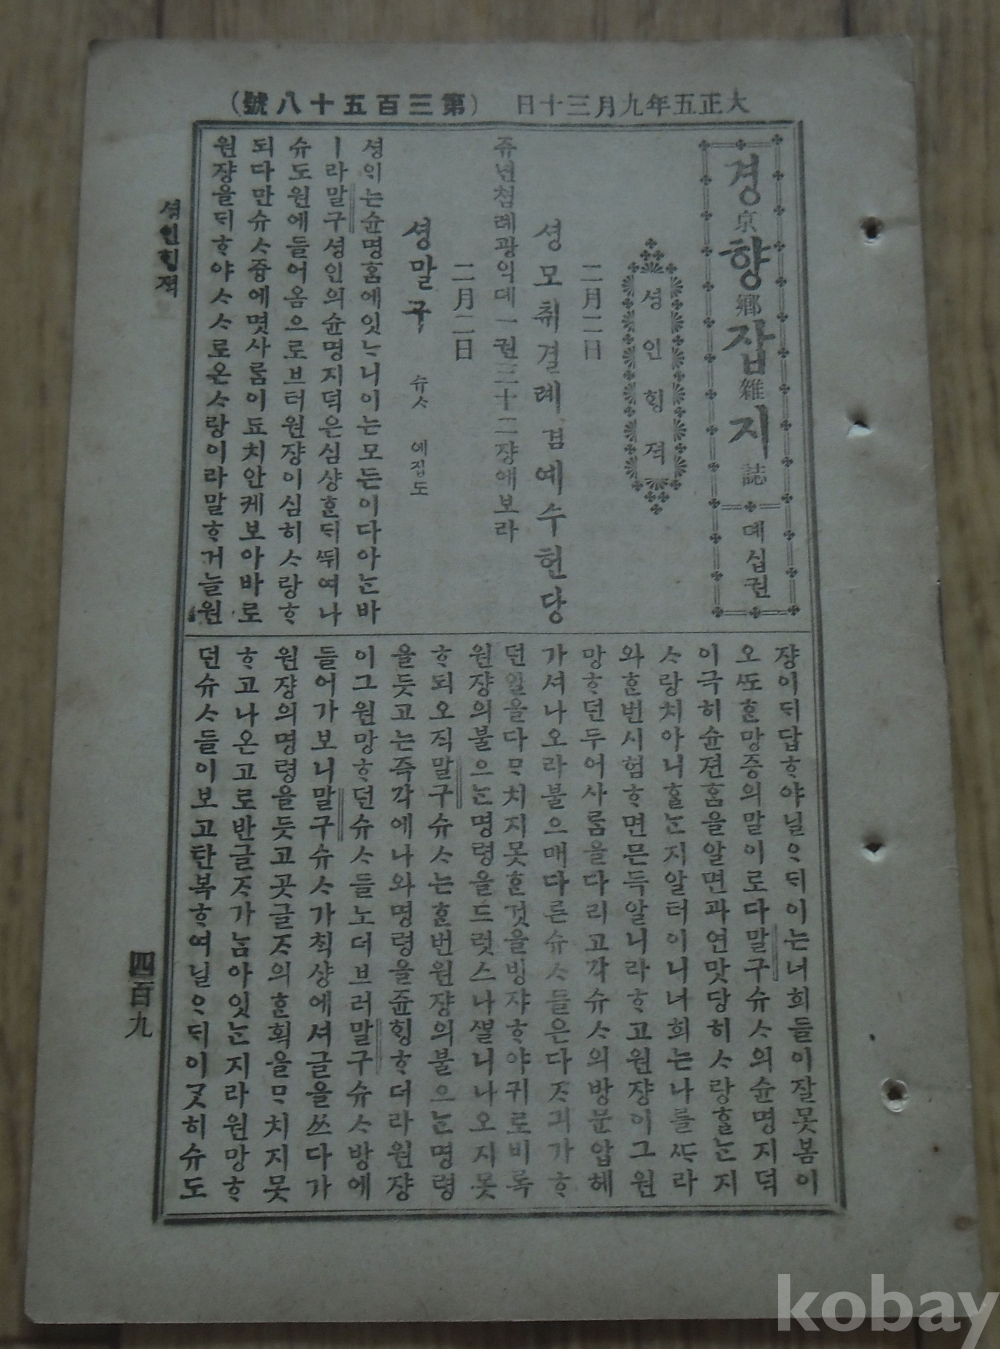 大正五年九月三十日 (第三百五十八號)
경京향鄕잡雜지誌 뎨십권
셩인ᄒᆡᆼ젹
二月二日
셩모취결례겸예수헌당
쥬년쳠례광익뎨一권三十二쟝애보라
二月二日
셩말구 슈ᄉᆞ 예집도
셩의는슌명홈에잇ᄂᆞ니이는모든이다아ᄂᆞᆫ바
ㅣ라말구셩인의슌명지덕은심샹ᄒᆞᆫᄃᆡ뛰여나
슈도원에들어옴으로브터원쟝이심히ᄉᆞ랑ᄒᆞ
되다만슈ᄉᆞ즁에몃사ᄅᆞᆷ이됴치안케보아바로
원쟝을ᄃᆡᄒᆞ야ᄉᆞᄉᆞ로온ᄉᆞ랑이라말ᄒᆞ거늘원
쟝이ᄃᆡ답ᄒᆞ야닐ᄋᆞᄃᆡ이는너희들이잘못봄이
오ᄯᅩᄒᆞᆫ망증의말이로다말구슈ᄉᆞ의슌명지덕
이극히슌젼홈을알면과연맛당히ᄉᆞ랑ᄒᆞᆯᄂᆞᆫ지
ᄉᆞ랑치아니ᄒᆞᆯᄂᆞᆫ지알터이니너희는나를ᄯᆞ라
와ᄒᆞᆫ번시험ᄒᆞ면믄득알니라ᄒᆞ고원쟝이그원
망ᄒᆞ던두어사ᄅᆞᆷ을다리고각슈ᄉᆞ의방문압헤
가셔나오라불으매다른슈ᄉᆞ들은다ᄌᆞ긔가ᄒᆞ
던일을다ᄆᆞ치지못ᄒᆞᆫ것을빙쟈ᄒᆞ야귀로비록
원쟝의불으ᄂᆞᆫ명령을드럿스나ᄲᆞᆯ니나오지못
ᄒᆞ되오직말구슈ᄉᆞ는ᄒᆞᆫ번원쟝의불으ᄂᆞᆫ명령
을듯고는즉각에나와명령을쥰ᄒᆡᆼᄒᆞ더라원쟝
이그원망ᄒᆞ던슈ᄉᆞ들노더브러말구슈ᄉᆞ방에
들어가보니말구슈ᄉᆞ가ᄎᆡᆨ샹에셔글을쓰다가
원쟝의명령을듯고곳글ᄌᆞ의ᄒᆞᆫ획을ᄆᆞ치지못
ᄒᆞ고나온고로반글ᄌᆞ가ᄂᆞᆷ아잇ᄂᆞᆫ지라원망ᄒᆞ
던슈ᄉᆞ들이보고탄복ᄒᆞ여닐ᄋᆞᄃᆡ이ᄀᆞᆺ히슈도
셩인ᄒᆡᆼ젹
四百九
kobay